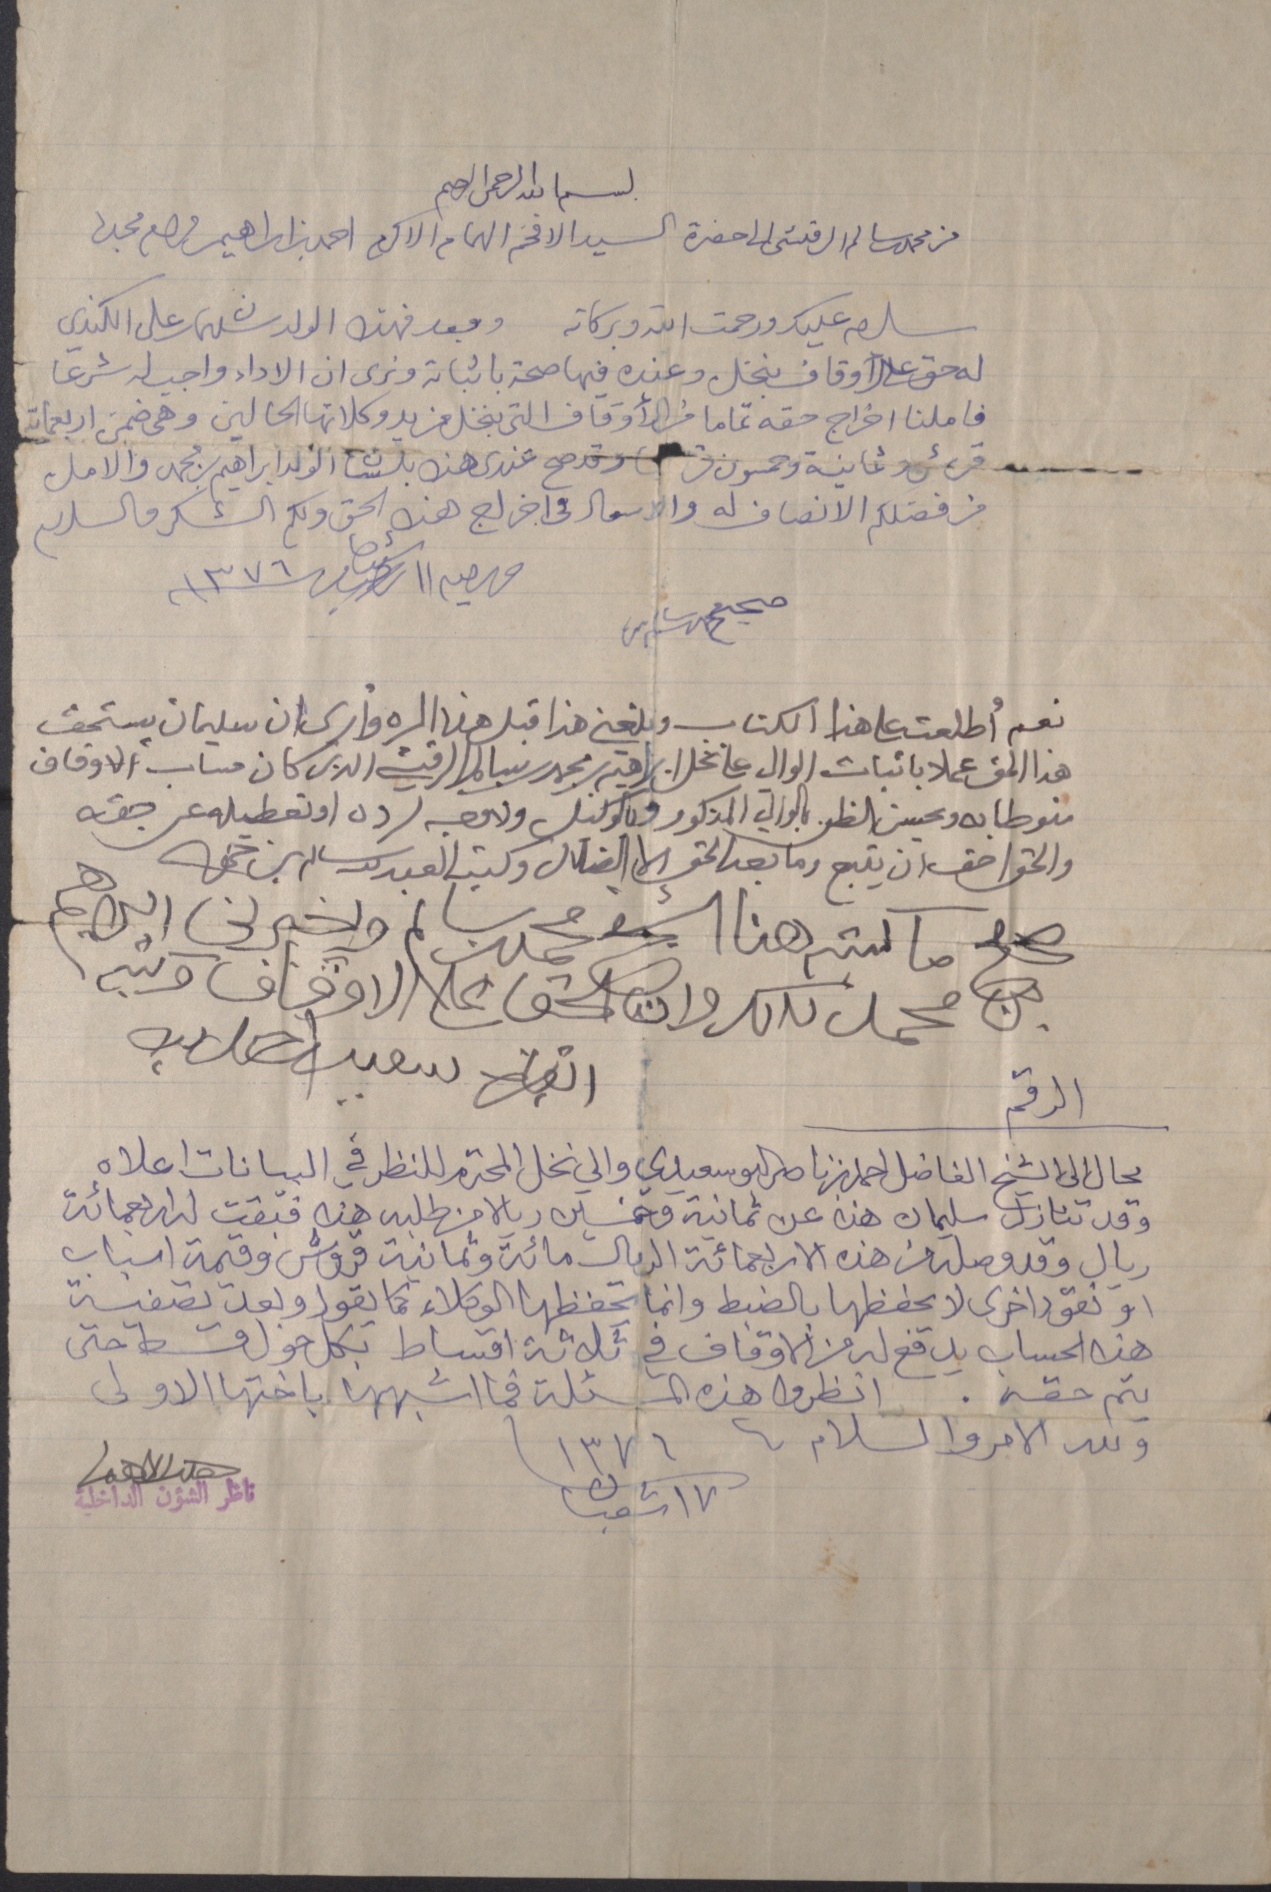 بسم الله الرحمن الرحيم
من محمد بن سالم الرقيشي الى حضرة السيد الافخم الهمام الاكرم احمد بن ابراهيم
سلام عليك ورحمت الله وبركاته وبعد فهذا الولد سليمان بن علي الكندي
له حق على أوقاف بنخل وعنده فيها صحة باثباته ونرى ان الاداء واجب له شرعا
فاملنا اخراج حقه تماما من الأوقاف التي بنخل من يد وكلائها الحالين وهي ضمن اربعمائة
قرش وثمانية وخمسون وقد صح عندي هذا الولد ابراهيم بن محمد والامل
من فضلكم الانصاف له في اخراج هذا الحق ولكم الشكر والسلام
١١ شعبان سنة ١٣٧٦
صحيح محمد بن سالم
نعم أطلعت على هذا الكتاب وبلغني هذا قبل هذه المرة وأرى أن سليمان يستحق
هذا الحق عملا باثبات الوالي على نخل ابراهيم بن محمد بن سالم الرقيشي الذي كان حساب الاوقاف
منوطا به وبحسن الظن بالوالي المذكور وبالوكيل ولا وجه لرده او تعطيله عن حقه
والحق احق أن يتبع وما بعد الحق الا الضلال وكتبه العبد سالم بن حمد
صح ما كتبه هنا الشيخ محمد بن سالم واخبرني ابراهيم
بن محمد بذلك وان الحق على الاوقاف وكتبه
سعيد بن احمد بيده
الرقم
محال الى الشيخ الفاضل احمد بن ناصر البوسعيدي والي نخل المحترم للنظر في البيانات اعلاه
وقد تنازل سليمان هذا عن ثمانية وخمسين ريالا من طلبه هذا فبقت له اربعمائة
ريال وقد وصله من هذه الاربعمائة الريال مائة وثمانية قروش وقيمة اسباب
او نقود اخرى لا يحفظها بالضبط وانما يحفظها الوكلاء كما يقول وبعد تصفية
هذا الحساب يدفع له من الاوقاف في ثلاثة اقساط بكل حول قسط حتى
يتم حقه . انظروا هذه المسئلة فما اشبهها باختها الاولى
ولله الامر والسلام
١٣٧٦
١٧ شعبان
ناظر الشؤن الداخلية